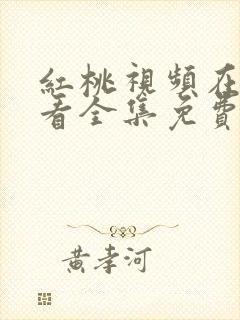 紅桃視頻在
看全集免費
黃孝河